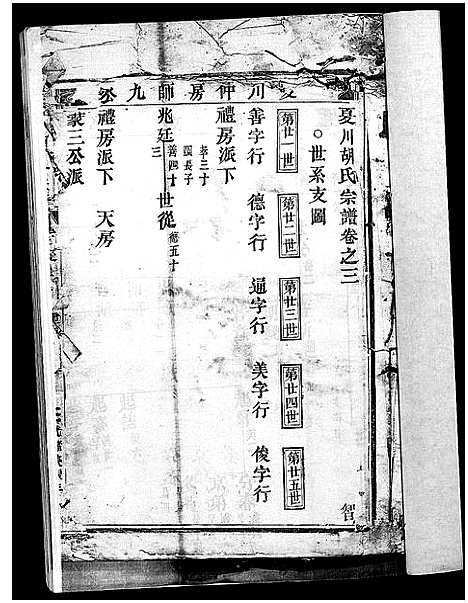 夏川胡氏宗譜卷之三
○世系支圖
智
第廿一世 第廿二世 第廿三世 第廿四世 第廿五世
善字行 德字行 通字行 美字行 俊字行
川 仲 房 師 九
禮房派下
孝三十
國長子
善四十
兆廷 世從 德五十
三
禮房派下 天房
裴三公派